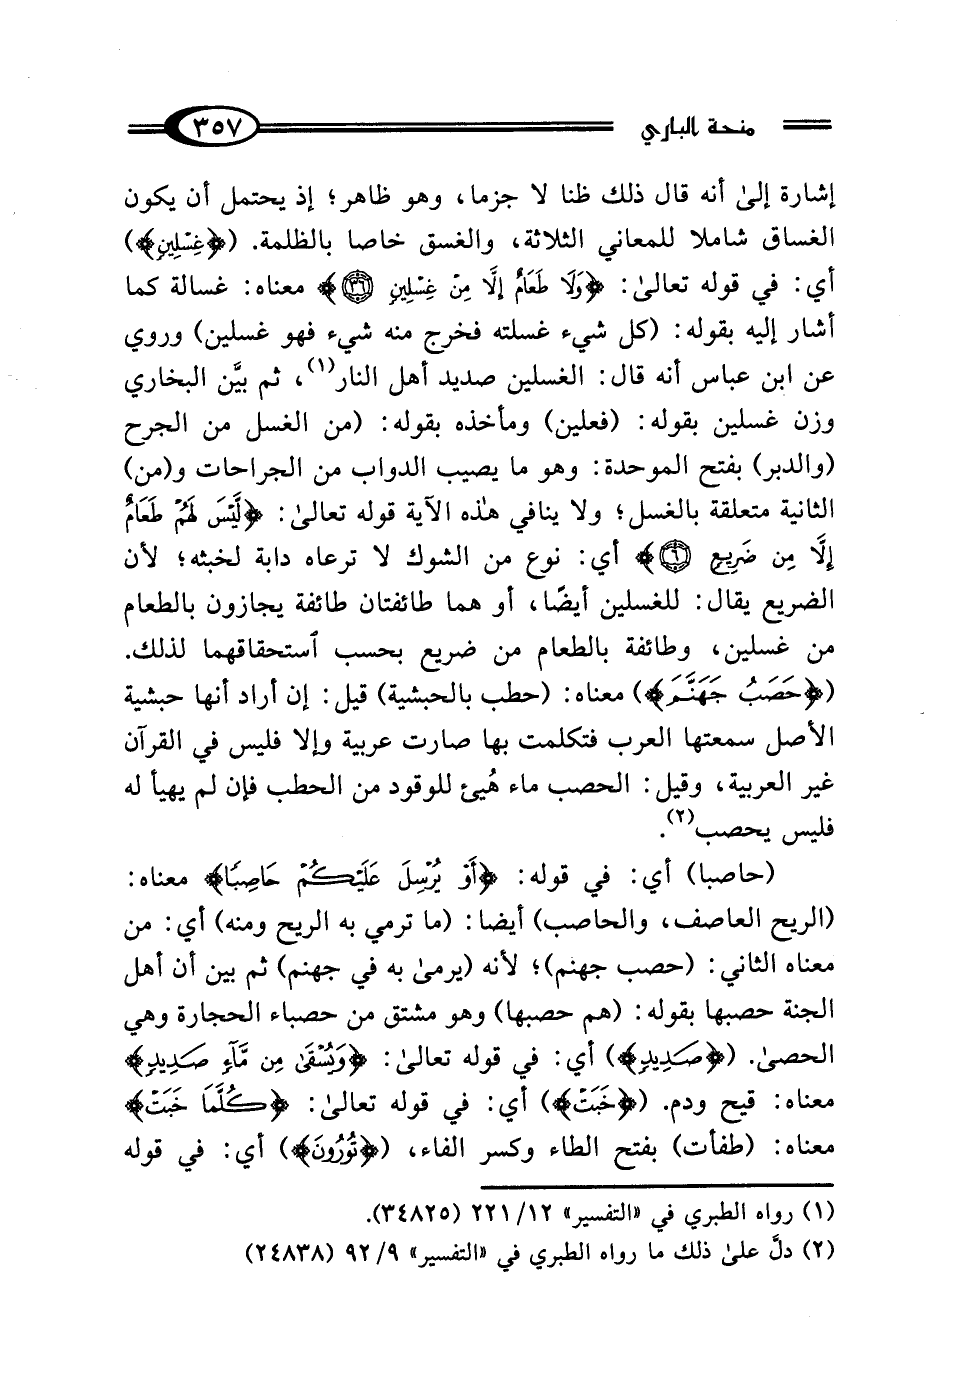 منحة الباري ٣٥٧
إشارة إلىٰ أنه قال ذلك ظنا لا جزما، وهو ظاهر؛ إذ يحتمل أن يكون
الغساق شاملا للمعاني الثلاثة، والغسق خاصا بالظلمة. (﴿غِسْلِينٍ﴾)
أي: في قوله تعالىٰ: ﴿وَلَا طَعَامٌ إِلَّا مِنْ غِسْلِينٍ ٣٦﴾ معناه: غسالة كما
أشار إليه بقوله: (كل شيء غسلته فخرج منه شيء فهو غسلين) وروي
عن ابن عباس أنه قال: الغسلين صديد أهل النار(١)، ثم بيَّن البخاري
وزن غسلين بقوله: (فعلين) ومأخذه بقوله: (من الغسل من الجرح
(والدبر) بفتح الموحدة: وهو ما يصيب الدواب من الجراحات و(من)
الثانية متعلقة بالغسل؛ ولا ينافي هذه الآية قوله تعالىٰ: ﴿لَّيْسَ لَهُمْ طَعَامٌ
إِلَّا مِن ضَرِيعٍ ٦﴾ أي: نوع من الشوك لا ترعاه دابة لخبثه؛ لأن
الضريع يقال: للغسلين أيضًا، أو هما طائفتان طائفة يجازون بالطعام
من غسلين، وطائفة بالطعام من ضريع بحسب ٱستحقاقهما لذلك.
(﴿حَصَبُ جَهَنَّمَ﴾) معناه: (حطب بالحبشية) قيل: إن أراد أنها حبشية
الأصل سمعتها العرب فتكلمت بها صارت عربية وإلا فليس في القرآن
غير العربية، وقيل: الحصب ماء هُيئ للوقود من الحطب فإن لم يهيأ له
فليس يحصب(٢).
(حاصبا) أي: في قوله: ﴿أَوْ يُرْسِلَ عَلَيْكُمْ حَاصِبًا﴾ معناه:
(الريح العاصف، والحاصب) أيضا: (ما ترمي به الريح ومنه) أي: من
معناه الثاني: (حصب جهنم)؛ لأنه (يرمىٰ به في جهنم) ثم بين أن أهل
الجنة حصبها بقوله: (هم حصبها) وهو مشتق من حصباء الحجارة وهي
الحصىٰ. (﴿صَدِيدٍ﴾) أي: في قوله تعالىٰ: ﴿وَيُسْقَىٰ مِن مَّآءٍ صَدِيدٍ﴾
معناه: قيح ودم. (﴿خَبَتْ﴾) أي: في قوله تعالىٰ: ﴿كُلَّمَا خَبَتْ﴾
معناه: (طفأت) بفتح الطاء وكسر الفاء، (﴿تُورُونَ﴾) أي: في قوله
(١) رواه الطبري في «التفسير» ١٢/ ٢٢١ (٣٤٨٢٥).
(٢) دلَّ علىٰ ذلك ما رواه الطبري في «التفسير» ٩/ ٩٢ (٢٤٨٣٨)